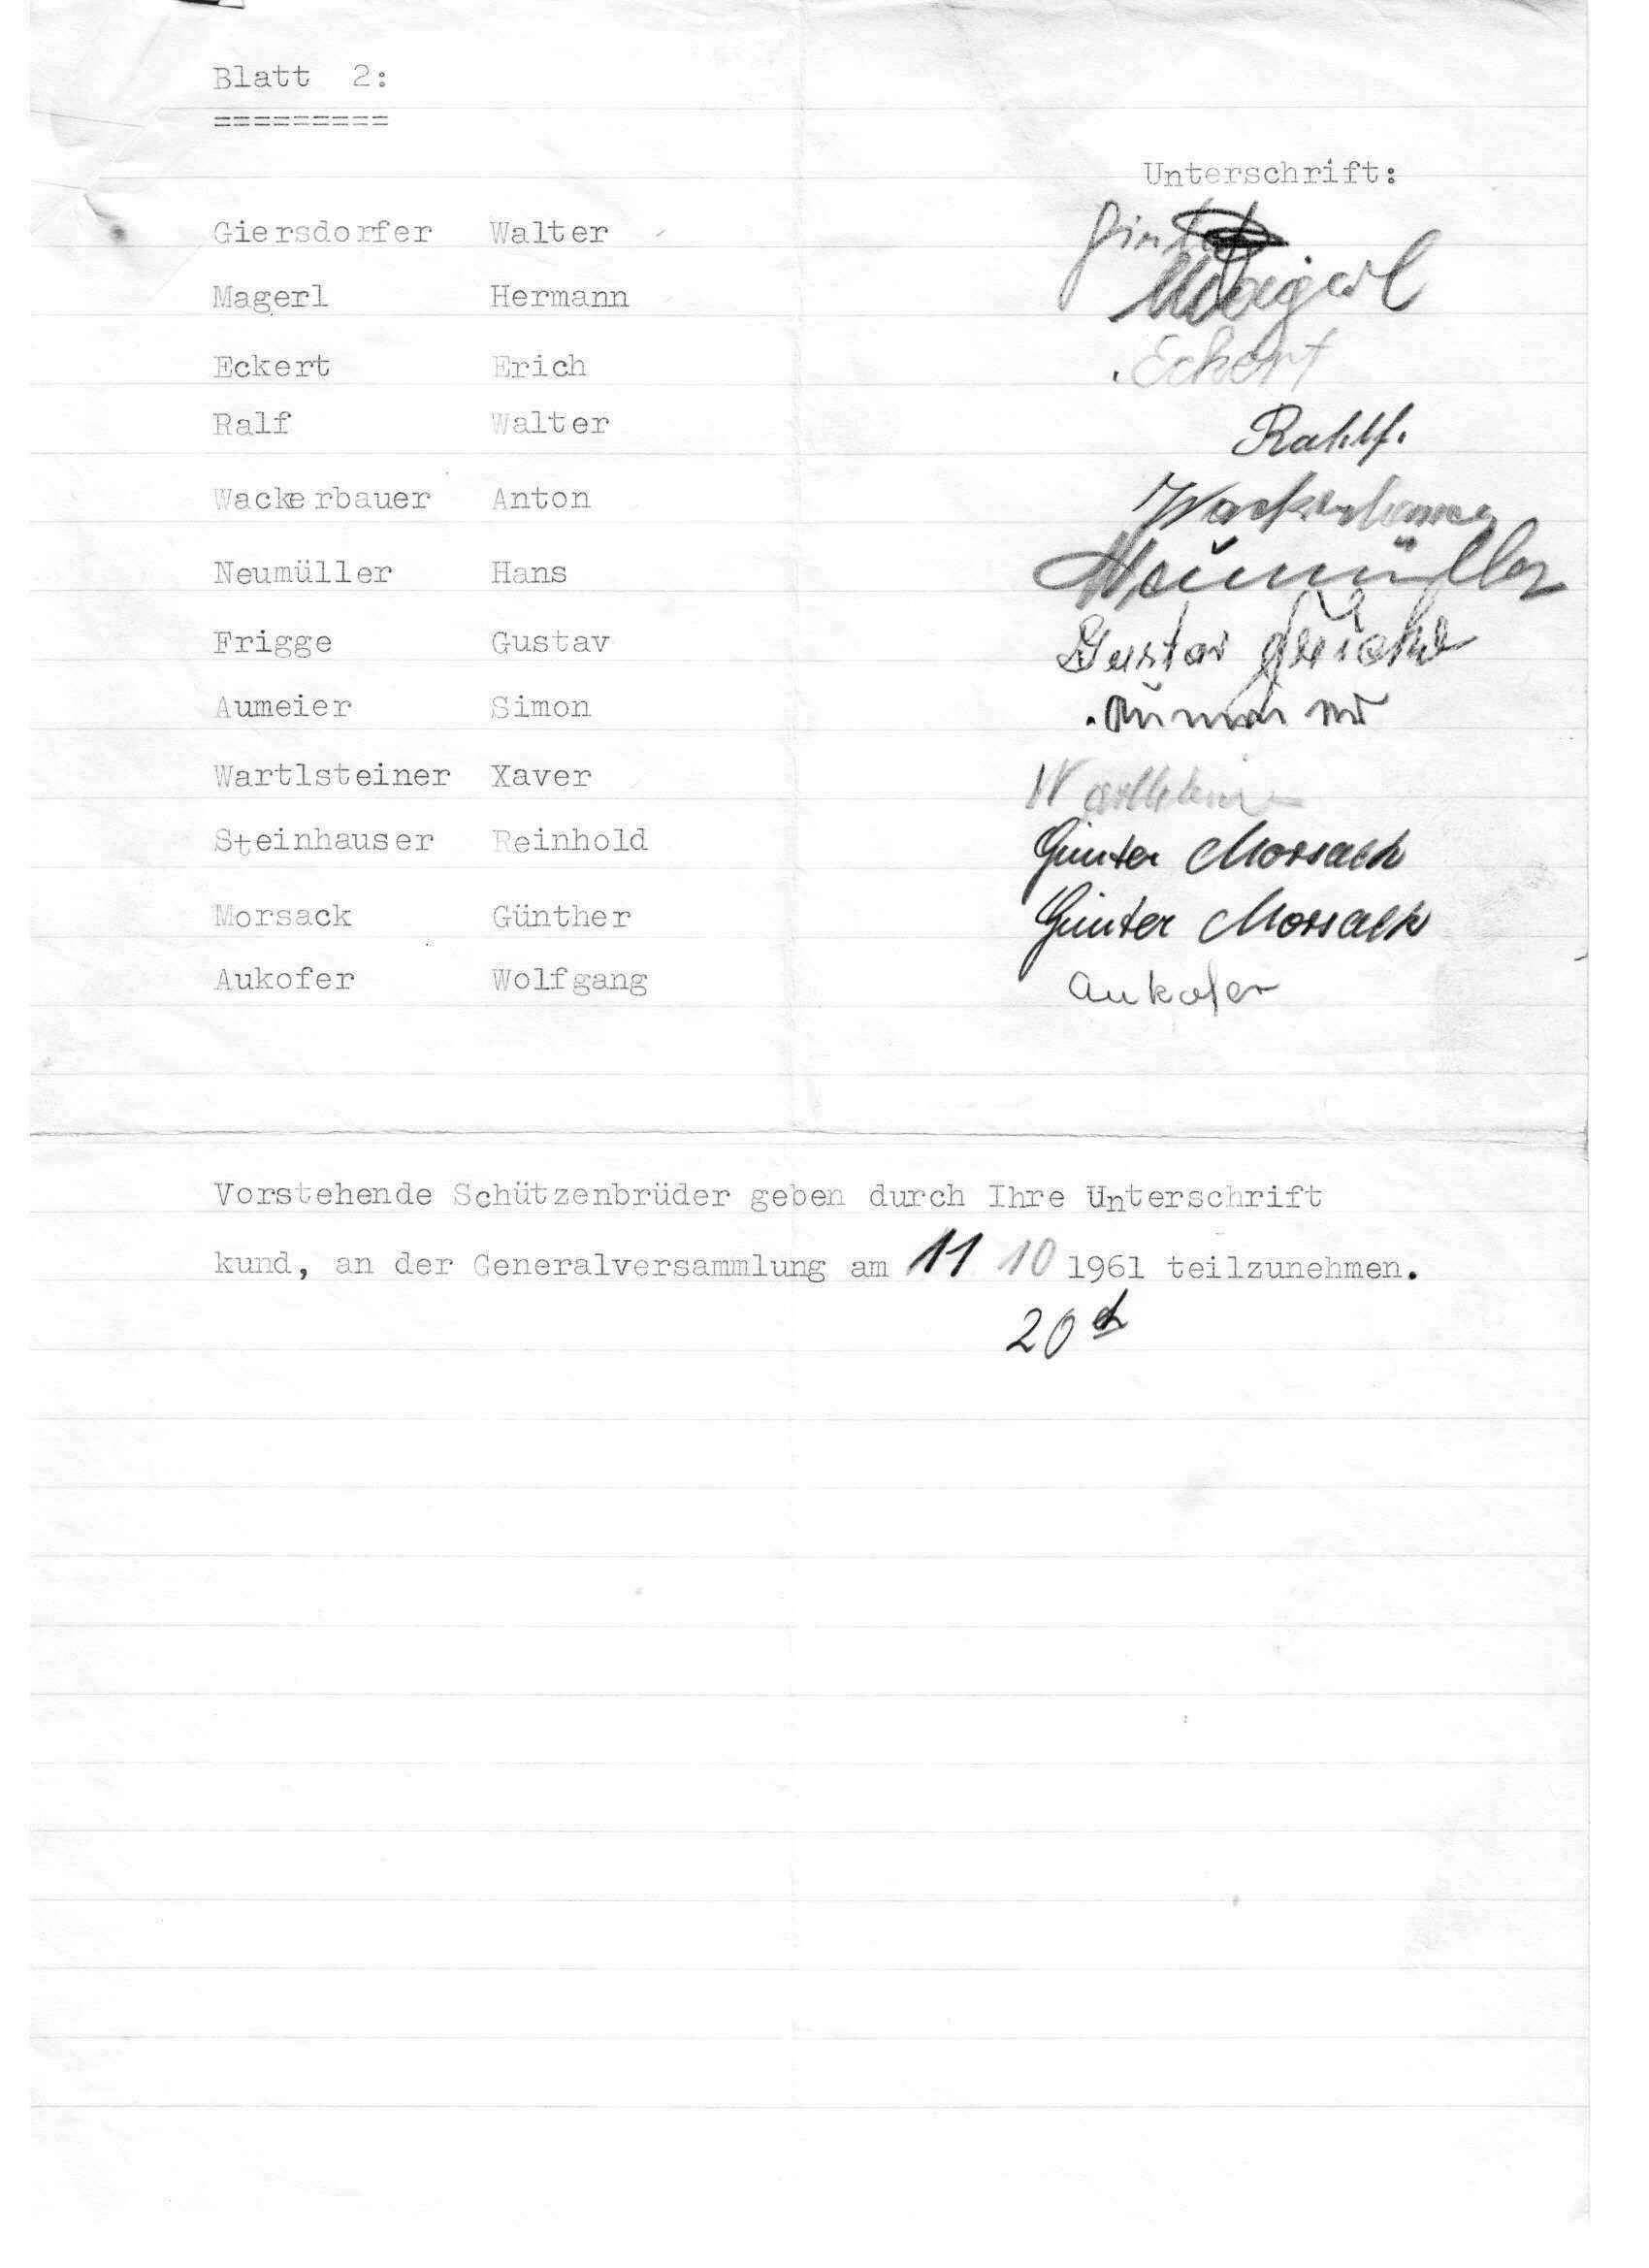 Blatt 2:
=========
Unterschrift:
Giersdorfer Walter
Magerl Hermann Magerl
Eckert Erich Eckert
Ralf Walter Rahlf.
Wackerbauer Anton Wackerbauer
Neumüller Hans Neumüller
Frigge Gustav Gustav
Aumeier Simon
Wartlsteiner Xaver
Steinhauser Reinhold Günter Morsack
Morsack Günther Günter Morsack
Aukofer Wolfgang Aukofer
Vorstehende Schützenbrüder geben durch Ihre Unterschrift
kund, an der Generalversammlung am 11 10 1961 teilzunehmen.
20